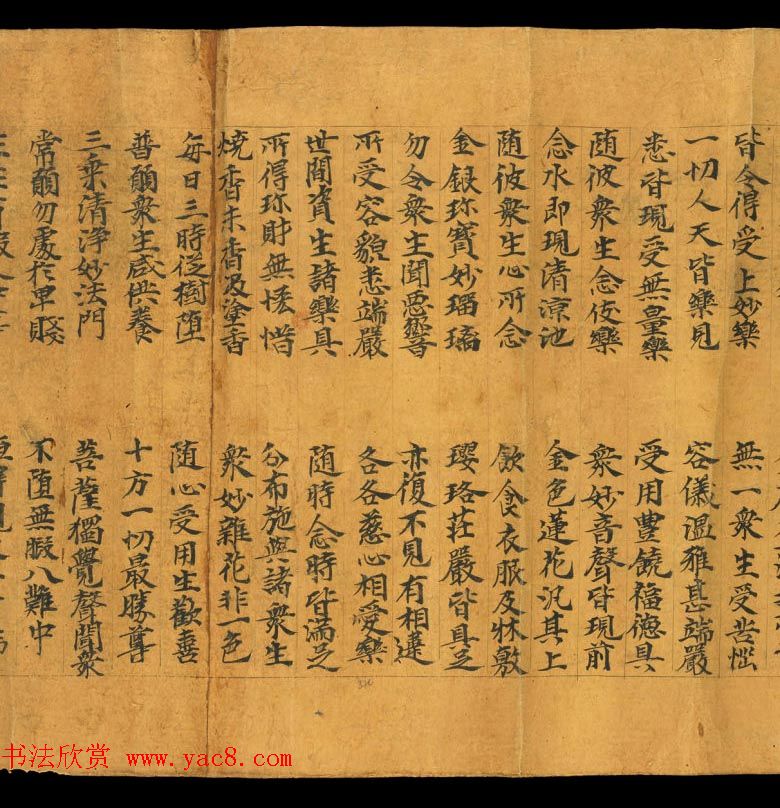 皆令得受上妙樂 無一衆生受苦惱
一切人天皆樂見 容儀温雅甚端嚴
悉皆現受無量樂 受用豐饒福德具
随彼衆生念伎樂 衆妙音聲皆現前
念水即現清涼池 金色蓮花汎其上
随彼衆生心所念 飲食衣服及牀敷
金銀珎寶妙瑠璃 瓔珞莊嚴皆具足
勿令衆生聞惡響 亦復不見有相違
所受容貌悉端嚴 各各慈心相愛樂
世間資生諸樂具 随時念時皆滿足
所得珎財無悋惜 分布施與諸衆生
燒香末香及塗香 衆妙雜花非一色
每日三時從樹墮 随心受用生歡喜
普願衆生咸供養 十方一切最勝尊
三乘清淨妙法門 菩薩獨覺聲聞衆
常願勿處於卑賤 不墮無暇八難中
书法欣赏 www.yac8.com